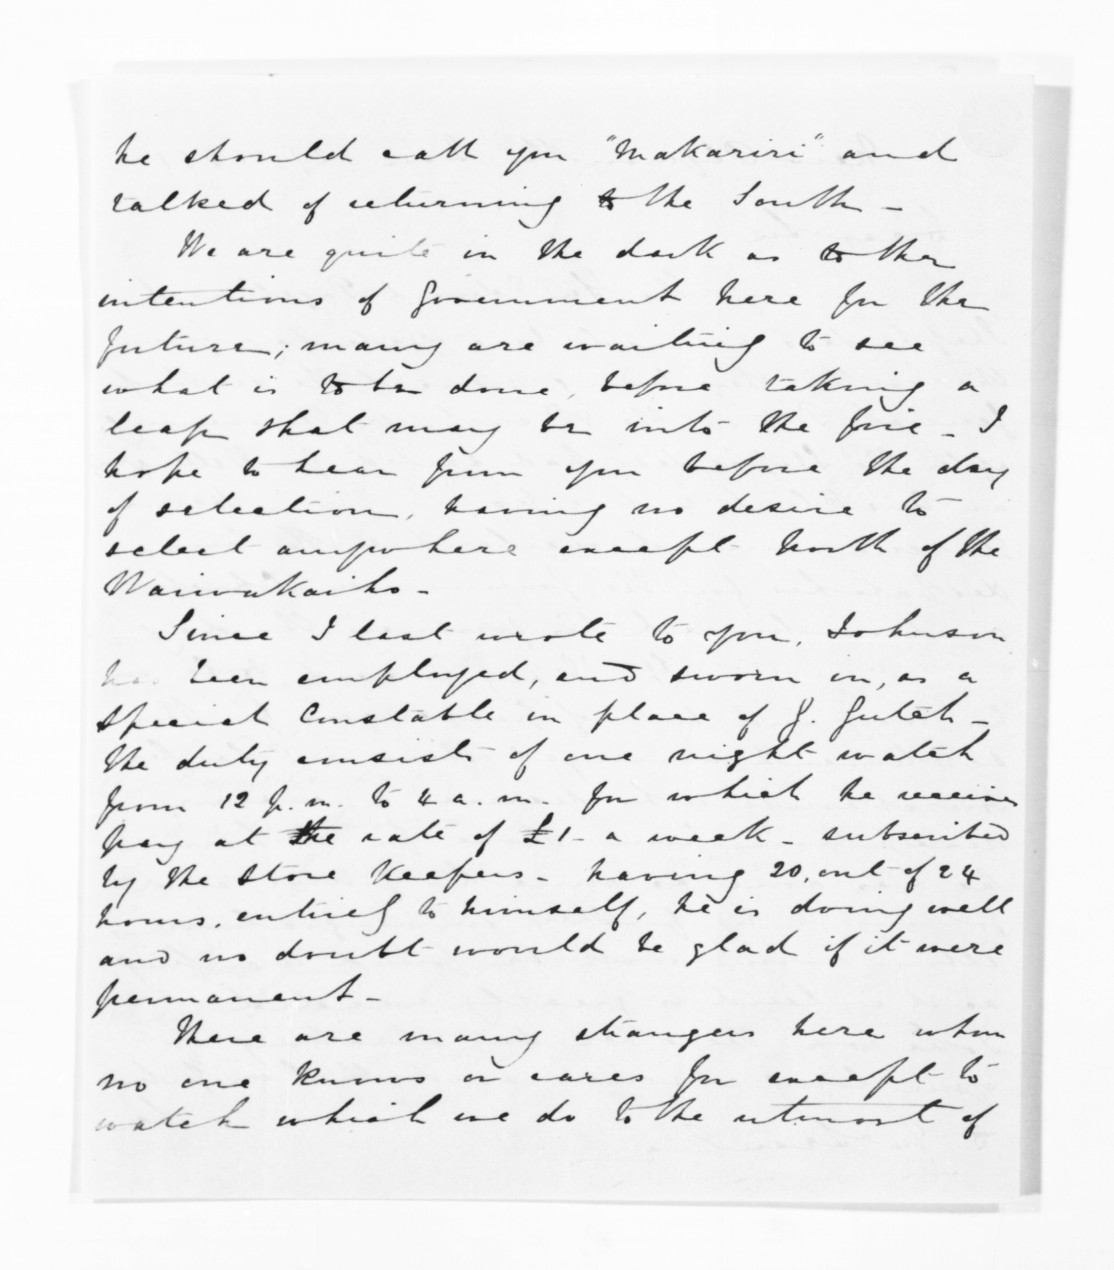 he should call you "Makariri" and
talked of returning to the South -
We are quite in the dark as to the
intentions of Government here for the
future; many are waiting to see
what is to be done, before taking a
leap that may be into the fire - I
hope to hear from you before the day
of selection, having no desire to
select anywhere except North of the
Waiwakaiho -
Since I last wrote to you, Johnson
has been employed, and sworn in, as a
Special Constable in place of J. Gutch -
the duty consists of one night watch
from 12 p.m. to 4 a.m. for which he receives
pay at the rate of £1 - a week - subscribed
by the Store Keepers - having 20, out of 24
hours, entirely to himself, he is doing well
and no doubt would be glad if it were
permanent -
There are many strangers here whom
no one knows or cares for except to
watch which we do to the utmost of